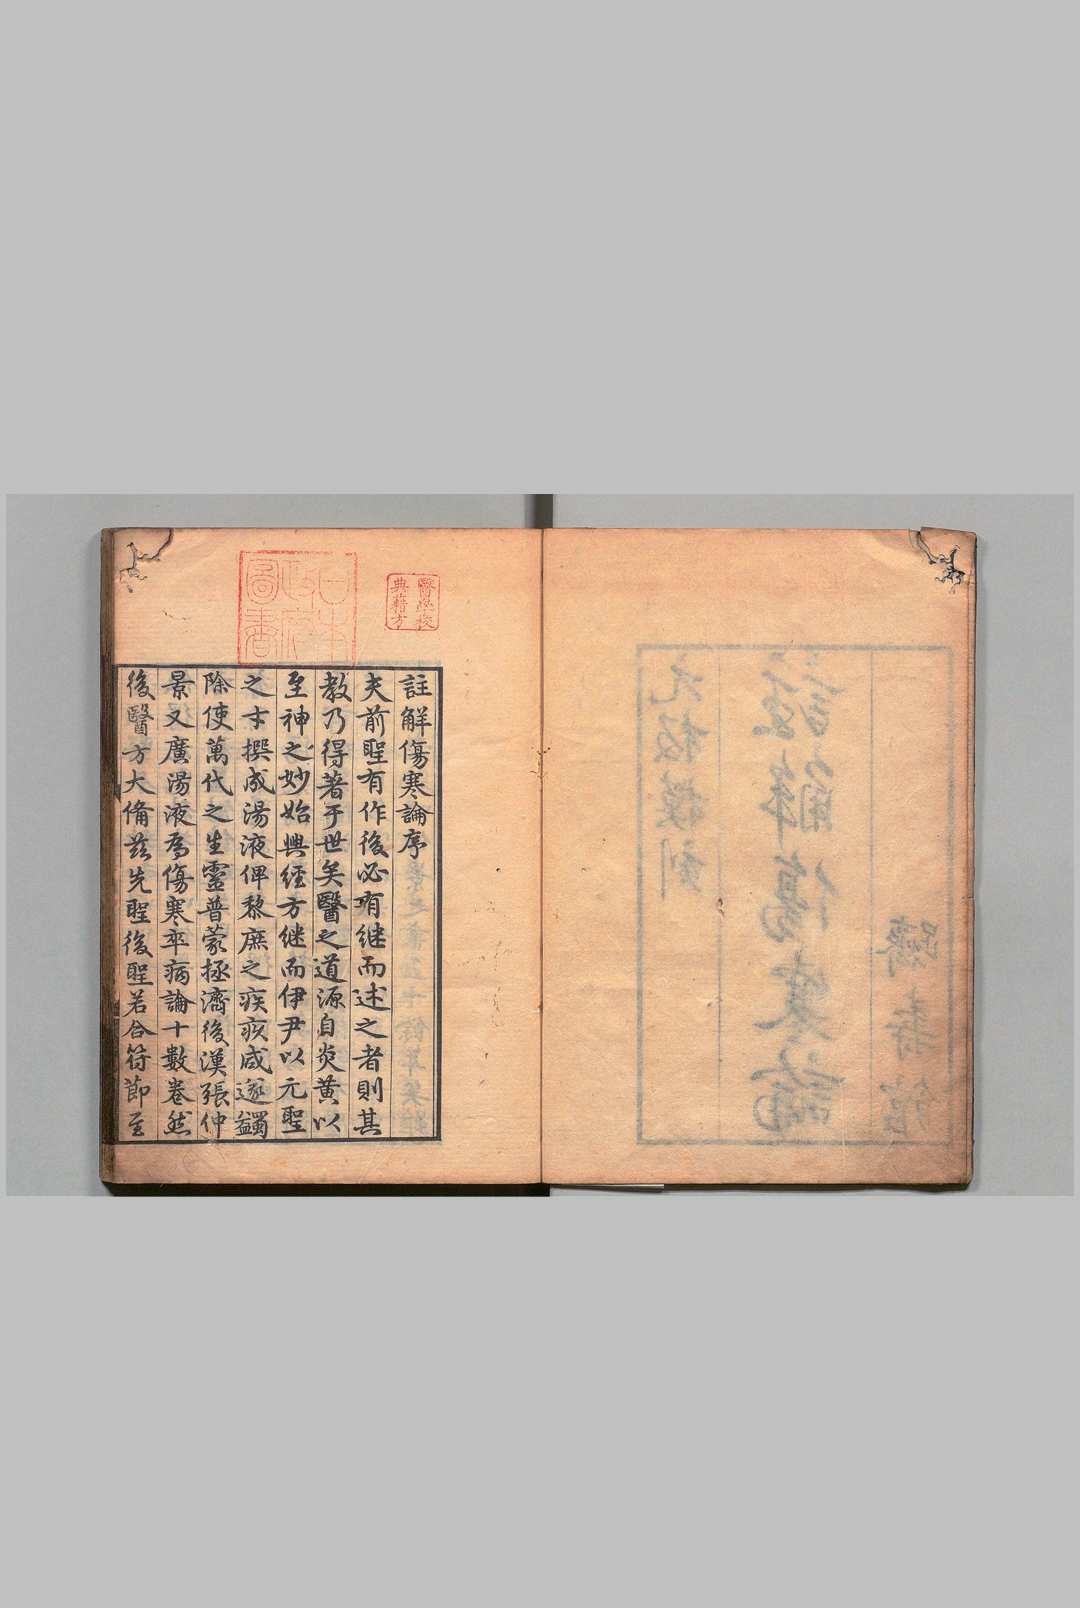 註解傷寒論序
夫前聖有作後必有継而述之者則其
教乃得著于世矣醫之道源自炎黄以
至神之妙始興經方継而伊尹以元聖
之才撰成湯液俾黎庶之疾疢咸遂蠲
除使萬代之生靈普蒙拯濟後漢張仲
景又廣湯液為傷寒卒病論十數卷然
後醫方大備茲先聖後聖若合符節至
醫學校
典籍才
日本
政府
圖書